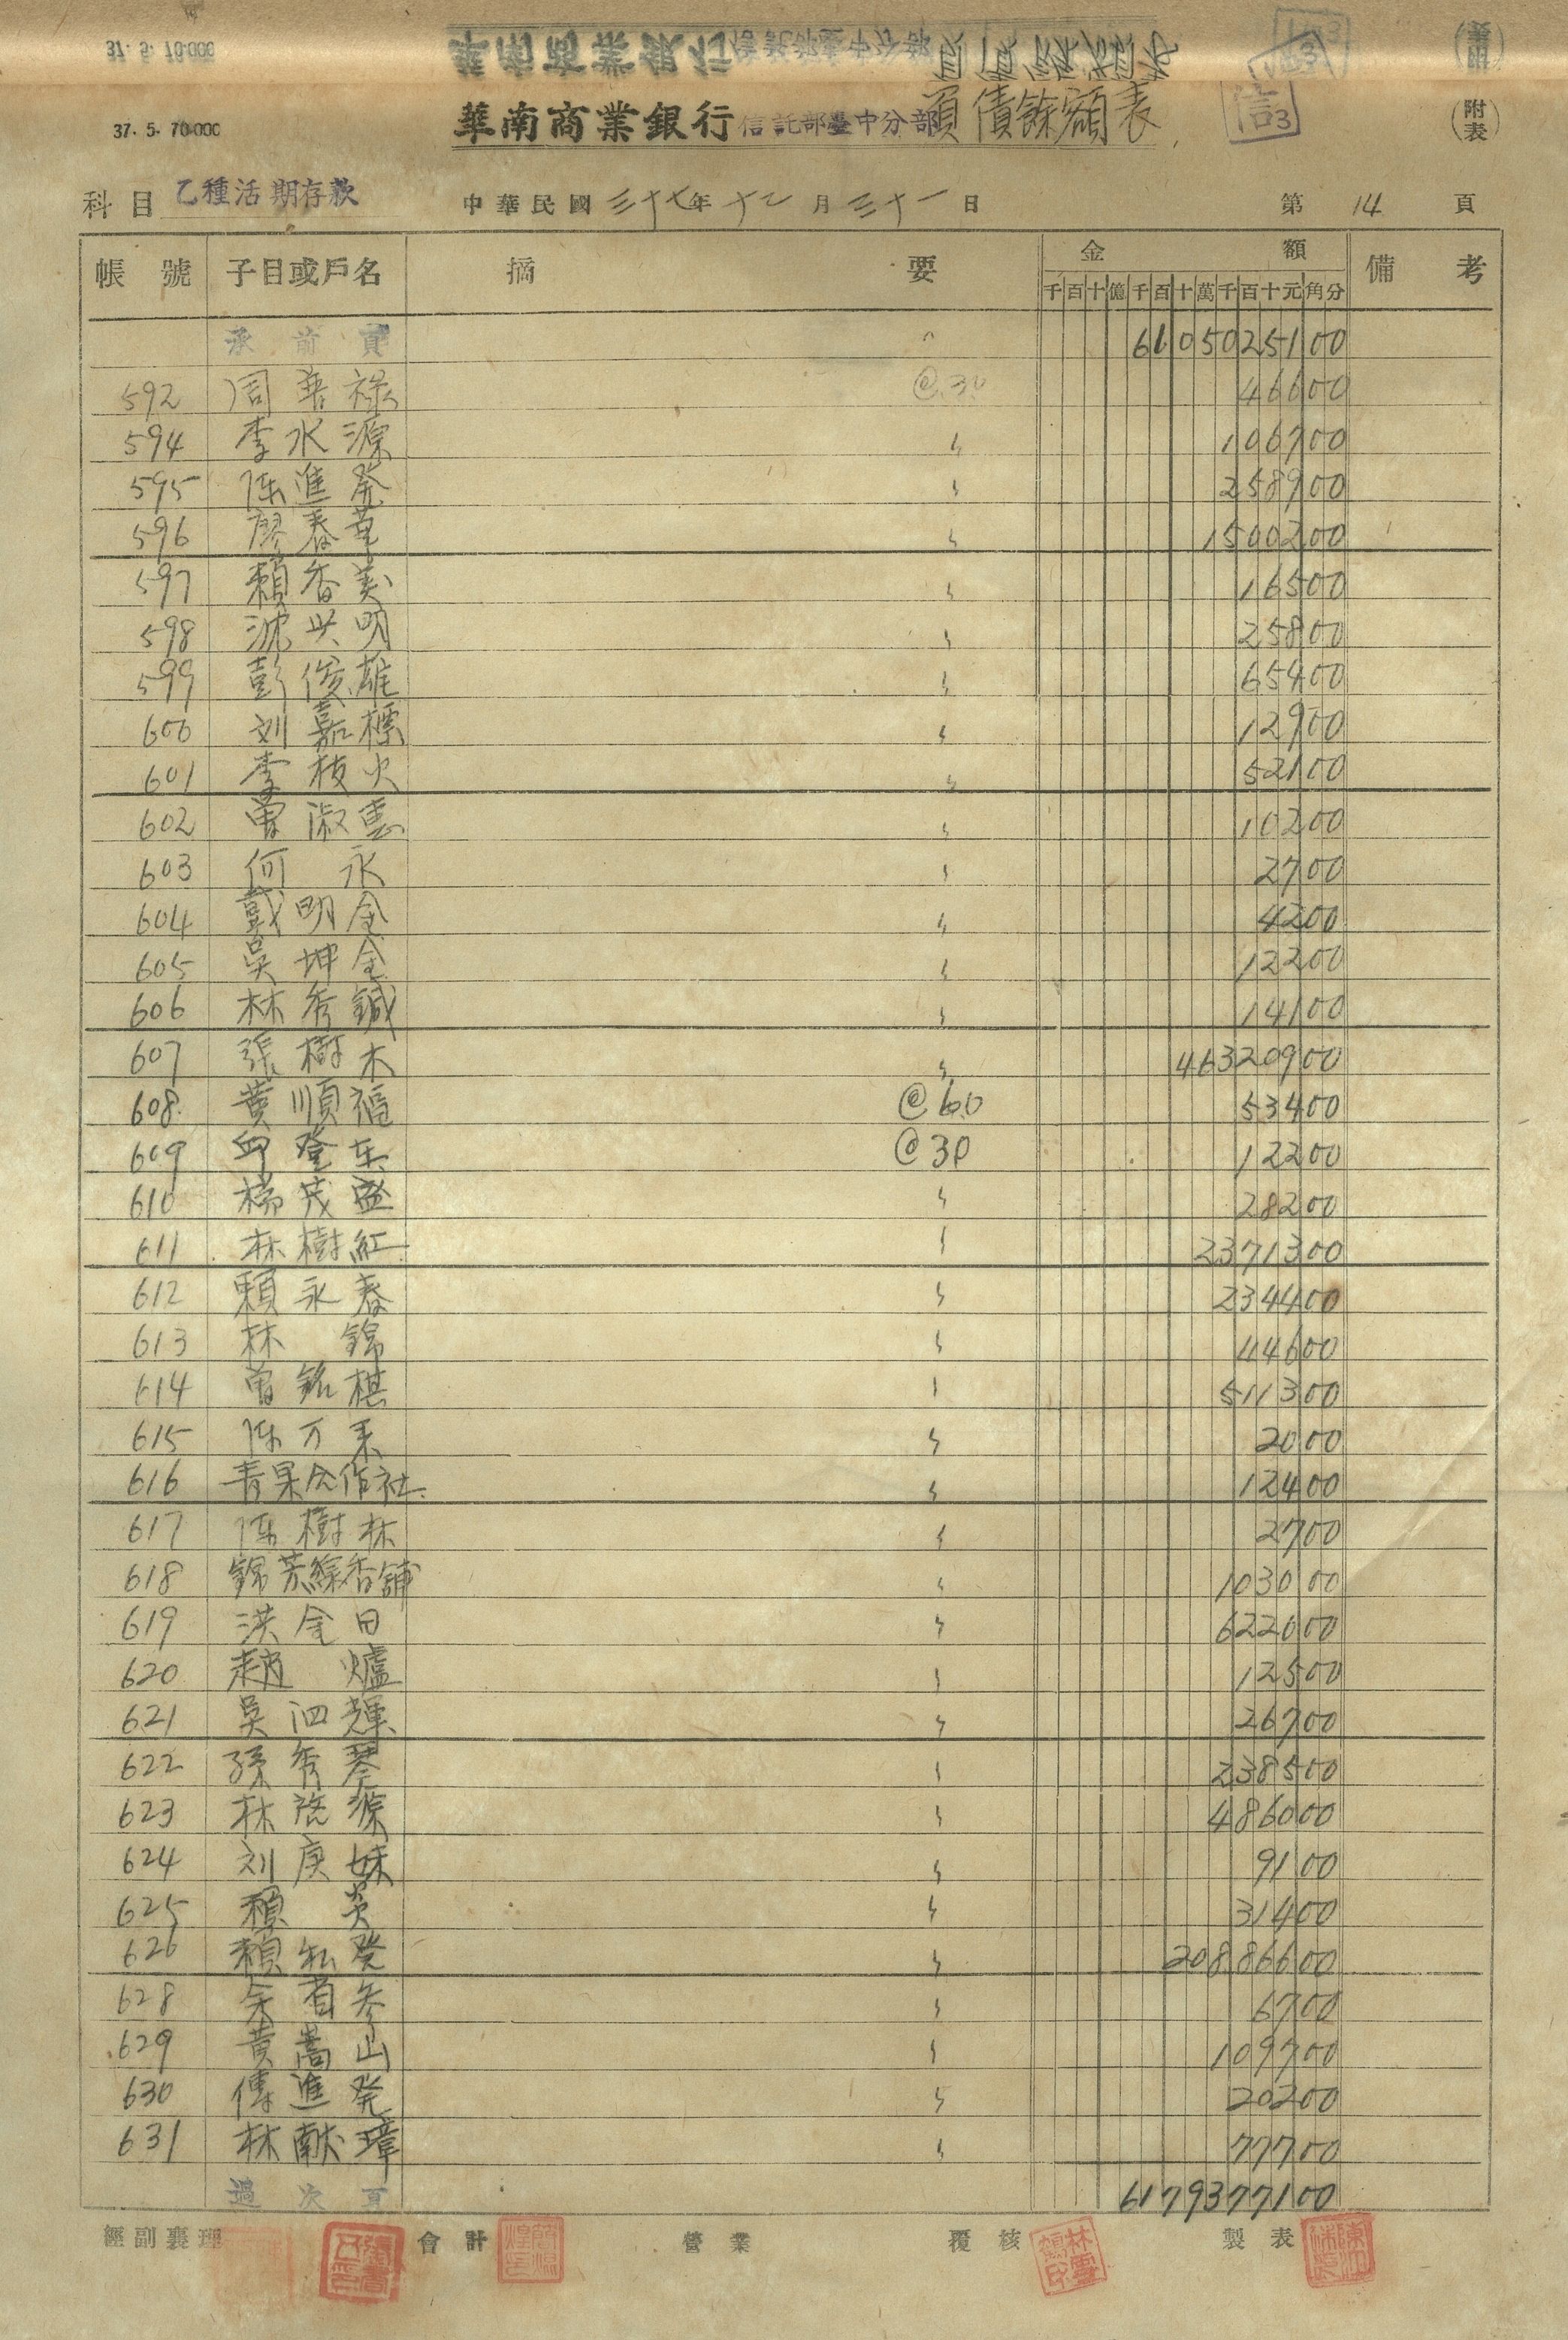 37. 5. 70.000
華南商業銀行信託部臺中分部負債餘額表
信3
(附表)
科目 乙種活期存款 中華民國三十七年十二月三十一日 第14頁
帳號 子目或戶名 摘要 金額 備考
千百十億千百十萬千百十元角分
承前頁 610502 5100
592 周 禄 @30 46600
594 李水源 〃 106700
595 陈進発 〃 258900
596 廖春 〃 1500200
597 賴香美 〃 16500
598 沈共明 〃 25800
599 彭俊雄 〃 65400
600 刘嘉標 〃 12900
601 李枝火 〃 52100
602 曾淑惠 〃 10200
603 何永 〃 2700
604 戴明金 〃 4200
605 吳坤金 〃 12200
606 林秀鍼 〃 14100
607 張樹木 〃 46320900
608 黄順福 @60 53400
609 邱登 @30 12200
610 楊茂盛 〃 28200
611 林樹紅 〃 2371300
612 賴永春 〃 234400
613 林錦 〃 44600
614 曾銘棋 〃 511300
615 陈万来 〃 2000
616 青果合作社 〃 12400
617 陈樹林 〃 2700
618 錦芳線香舖 〃 103000
619 洪金田 〃 622000
620 趙爐 〃 12500
621 吳泗輝 〃 26700
622 孫秀琴 〃 238500
623 林啓源 〃 486000
624 刘庚妹 〃 9100
625 賴炎 〃 31400
626 賴私発 〃 20886600
628 省参 〃 6700
629 黄嵩山 〃 109700
630 傅進発 〃 20200
631 林献璋 〃 77700
過次頁 6179377100
經副襄理 會計 營業 覆核 製表